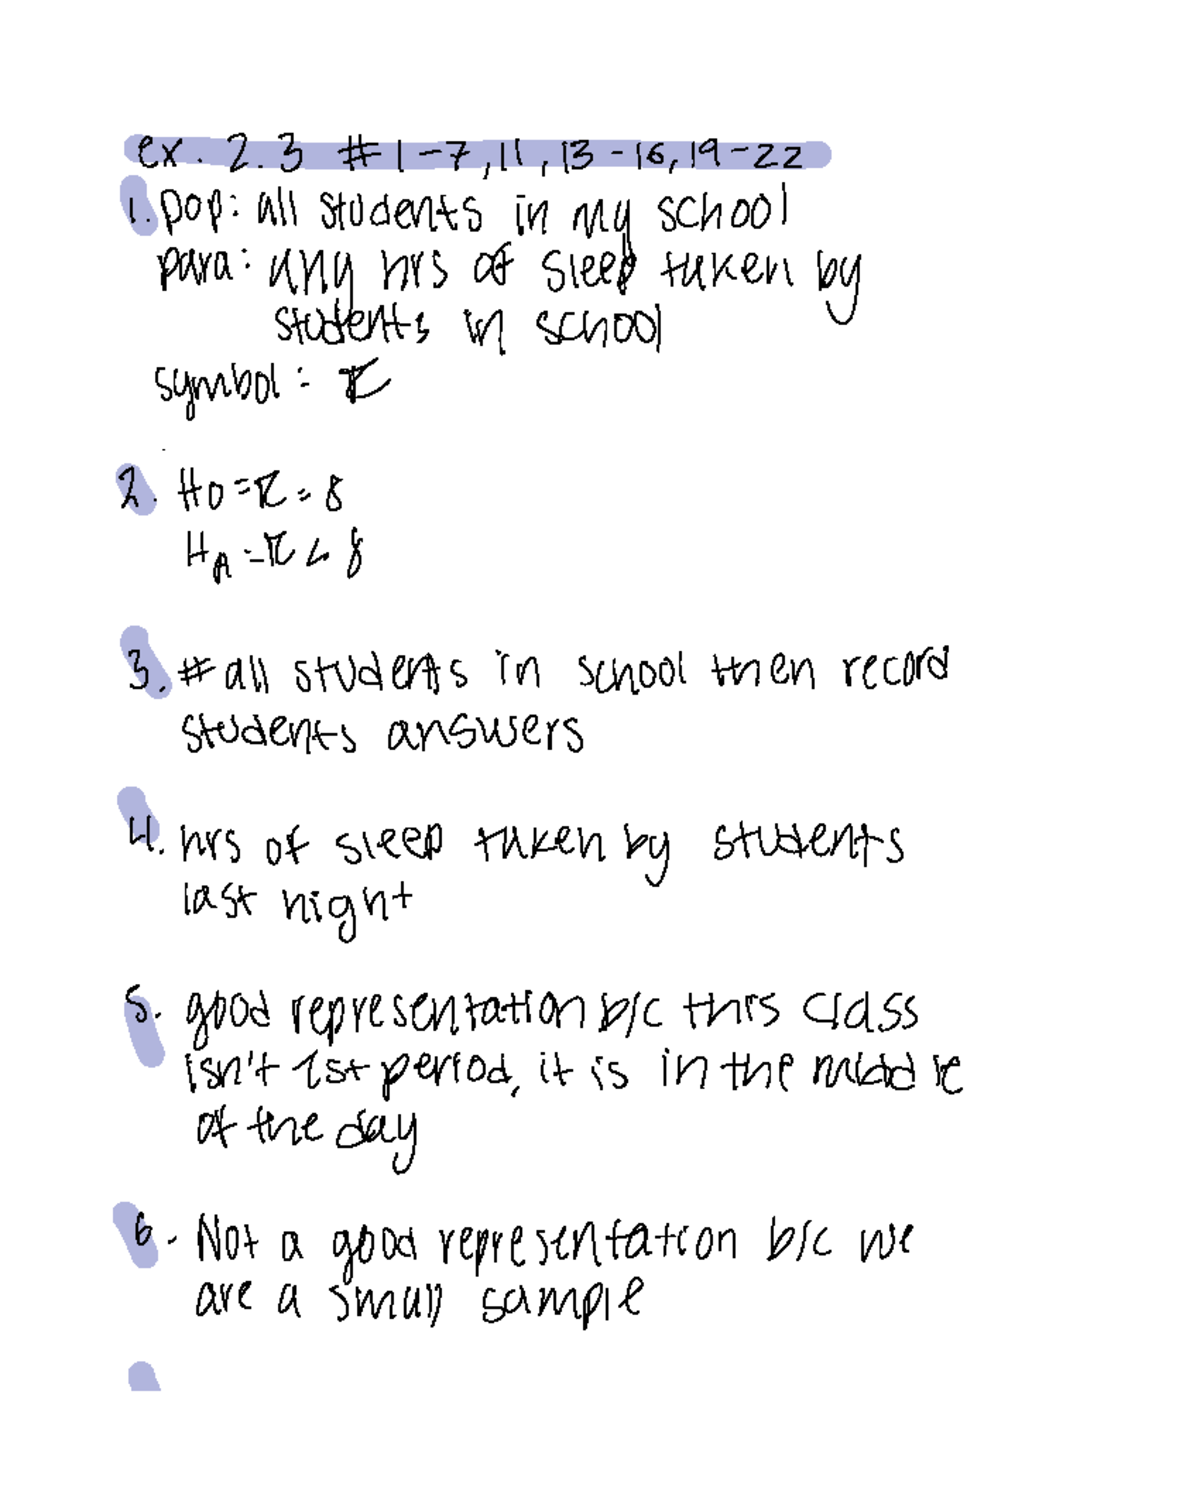 ex. 2.3 #1-7, 11, 13-16, 19-22
1. pop: all students in my school
para: any hrs of sleep taken by
students in school
symbol: π
2. H0 = π = 8
HA = π < 8
3. # all students in school then record
students answers
4. hrs of sleep taken by students
last night
5. good representation b/c this class
isn't 1st period, it is in the middle
of the day
6. Not a good representation b/c we
are a small sample